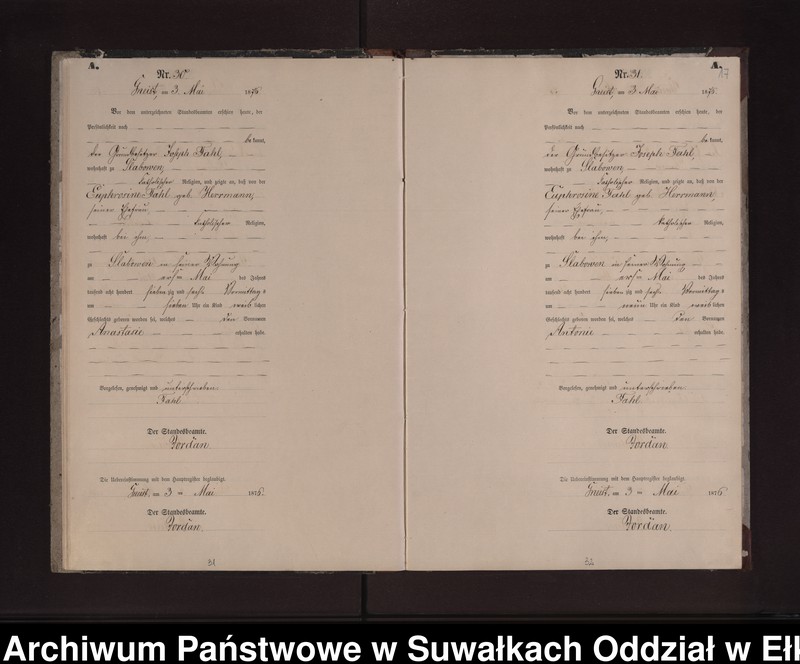 A.
Nr. 30.
am 3. Mai 1876
Vor dem unterzeichneten Standesbeamten erschien heute, der
Persönlichkeit nach
bekannt,
der Grundbesitzer Joseph Fahl,
wohnhaft zu Slabowen
katholischer Religion, und zeigte an, daß von der
Euphrosine Fahl geb. Herrmann,
seiner Ehefrau,
katholischer Religion,
wohnhaft bei ihm,
zu Slabowen in seiner Wohnung
am ersten Mai des Jahres
tausend acht hundert siebenzig und sechs Vormittags
um sieben Uhr ein Kind weiblichen
Geschlechts geboren worden sei, welches den Vornamen
Anastasie erhalten habe.
Vorgelesen, genehmigt und unterschrieben
Fahl
Der Standesbeamte.
Jordan
Die Uebereinstimmung mit dem Hauptregister beglaubigt.
am 3 ten Mai 1876.
Der Standesbeamte.
Jordan.
31
A.
17
Nr. 31.
am 3. Mai 1876.
Vor dem unterzeichneten Standesbeamten erschien heute, der
Persönlichkeit nach
bekannt,
der Grundbesitzer Joseph Fahl,
wohnhaft zu Slabowen,
katholischer Religion, und zeigte an, daß von der
Euphrosine Fahl geb. Herrmann,
seiner Ehefrau,
katholischer Religion,
wohnhaft bei ihm,
zu Slabowen in seiner Wohnung
am ersten Mai des Jahres
tausend acht hundert siebenzig und sechs Vormittags
um neun Uhr ein Kind weiblichen
Geschlechts geboren worden sei, welches den Vornamen
Antonie erhalten habe.
Vorgelesen, genehmigt und unterschrieben
Fahl
Der Standesbeamte.
Jordan
Die Uebereinstimmung mit dem Hauptregister beglaubigt.
am 3 ten Mai 1876
Der Standesbeamte.
Jordan.
32
Archiwum Państwowe w Suwałkach Oddział w Ełk